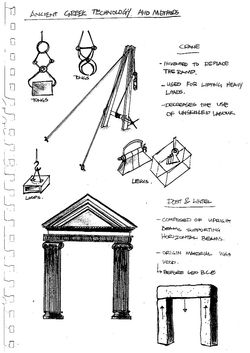 ANCIENT GREEK TECHNOLOGY AND METHODS
CRANE
- INVENTED TO REPLACE
THE RAMP.
- USED FOR LIFTING HEAVY
LOADS.
- DECREASED THE USE
OF UNSKILLED LABOUR.
TONGS
TONGS
LEWIS
LOOPS
POST & LINTEL
- COMPOSED OF UPRIGHT
BEAMS SUPPORTING
HORIZONTAL BEAMS.
- ORIGIN MATERIAL WAS
WOOD.
BEFORE 600 BCE